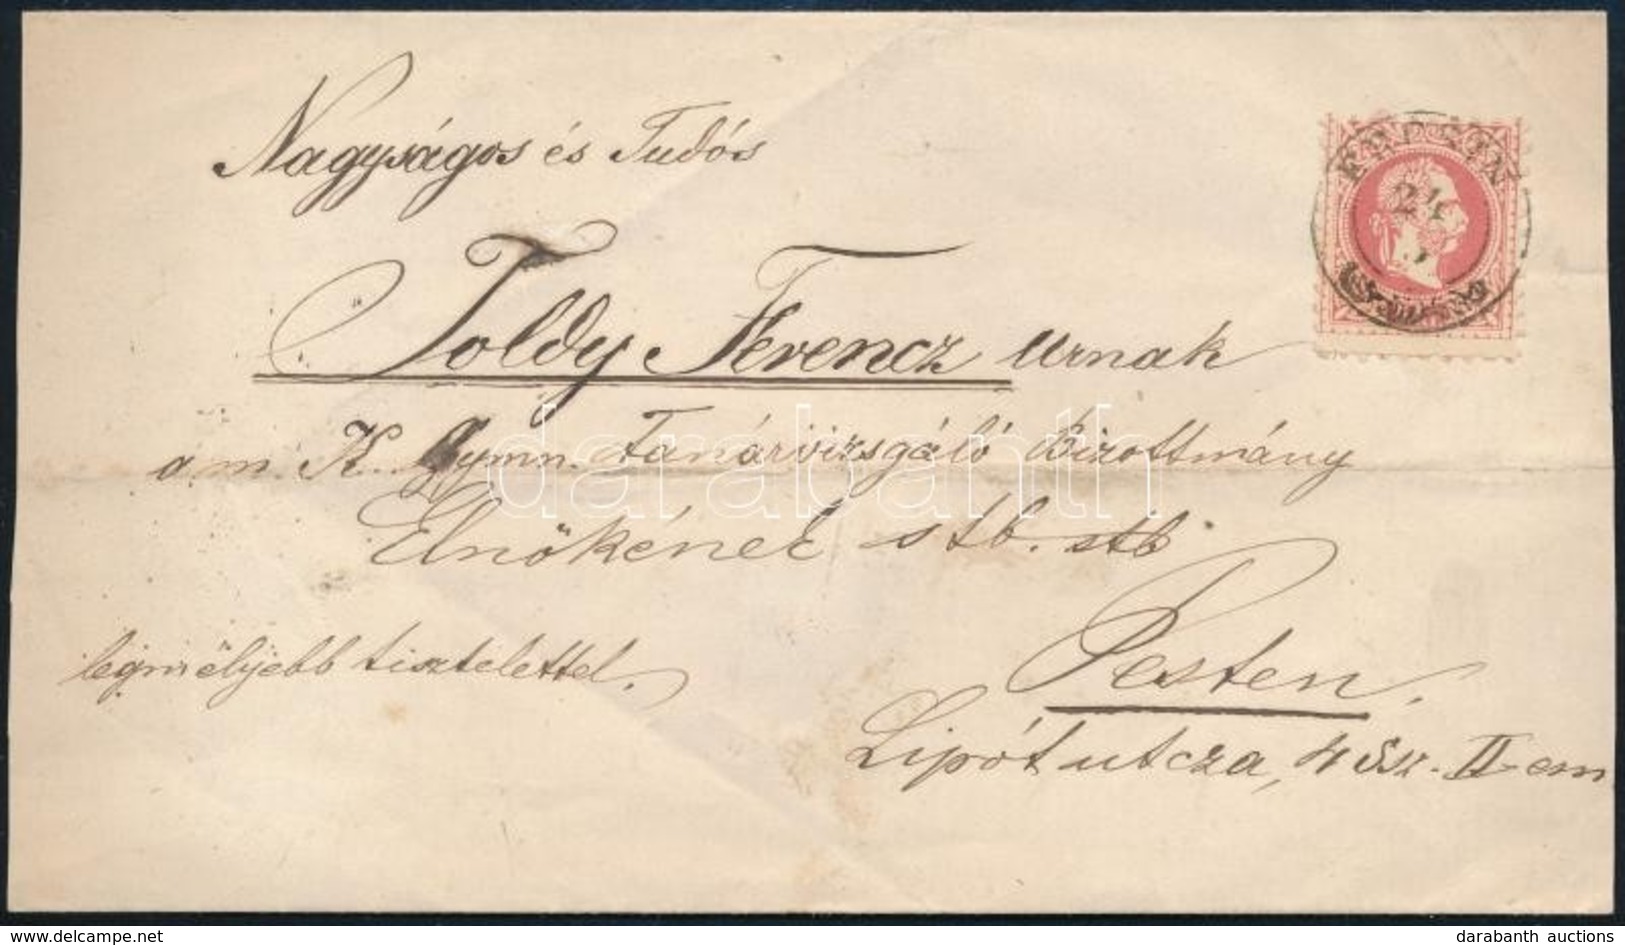 Nagyságos és Tudós
Toldy Ferencz urnak
a m. K. Gymn. Tanárvizsgáló Bizottmány
Elnökének stb. stb
legmélyebb tisztelettel.
Pesten.
Lipót utcza, 4 Ssz. II em
24
darabanth
darabanth auctions
delcampe.net